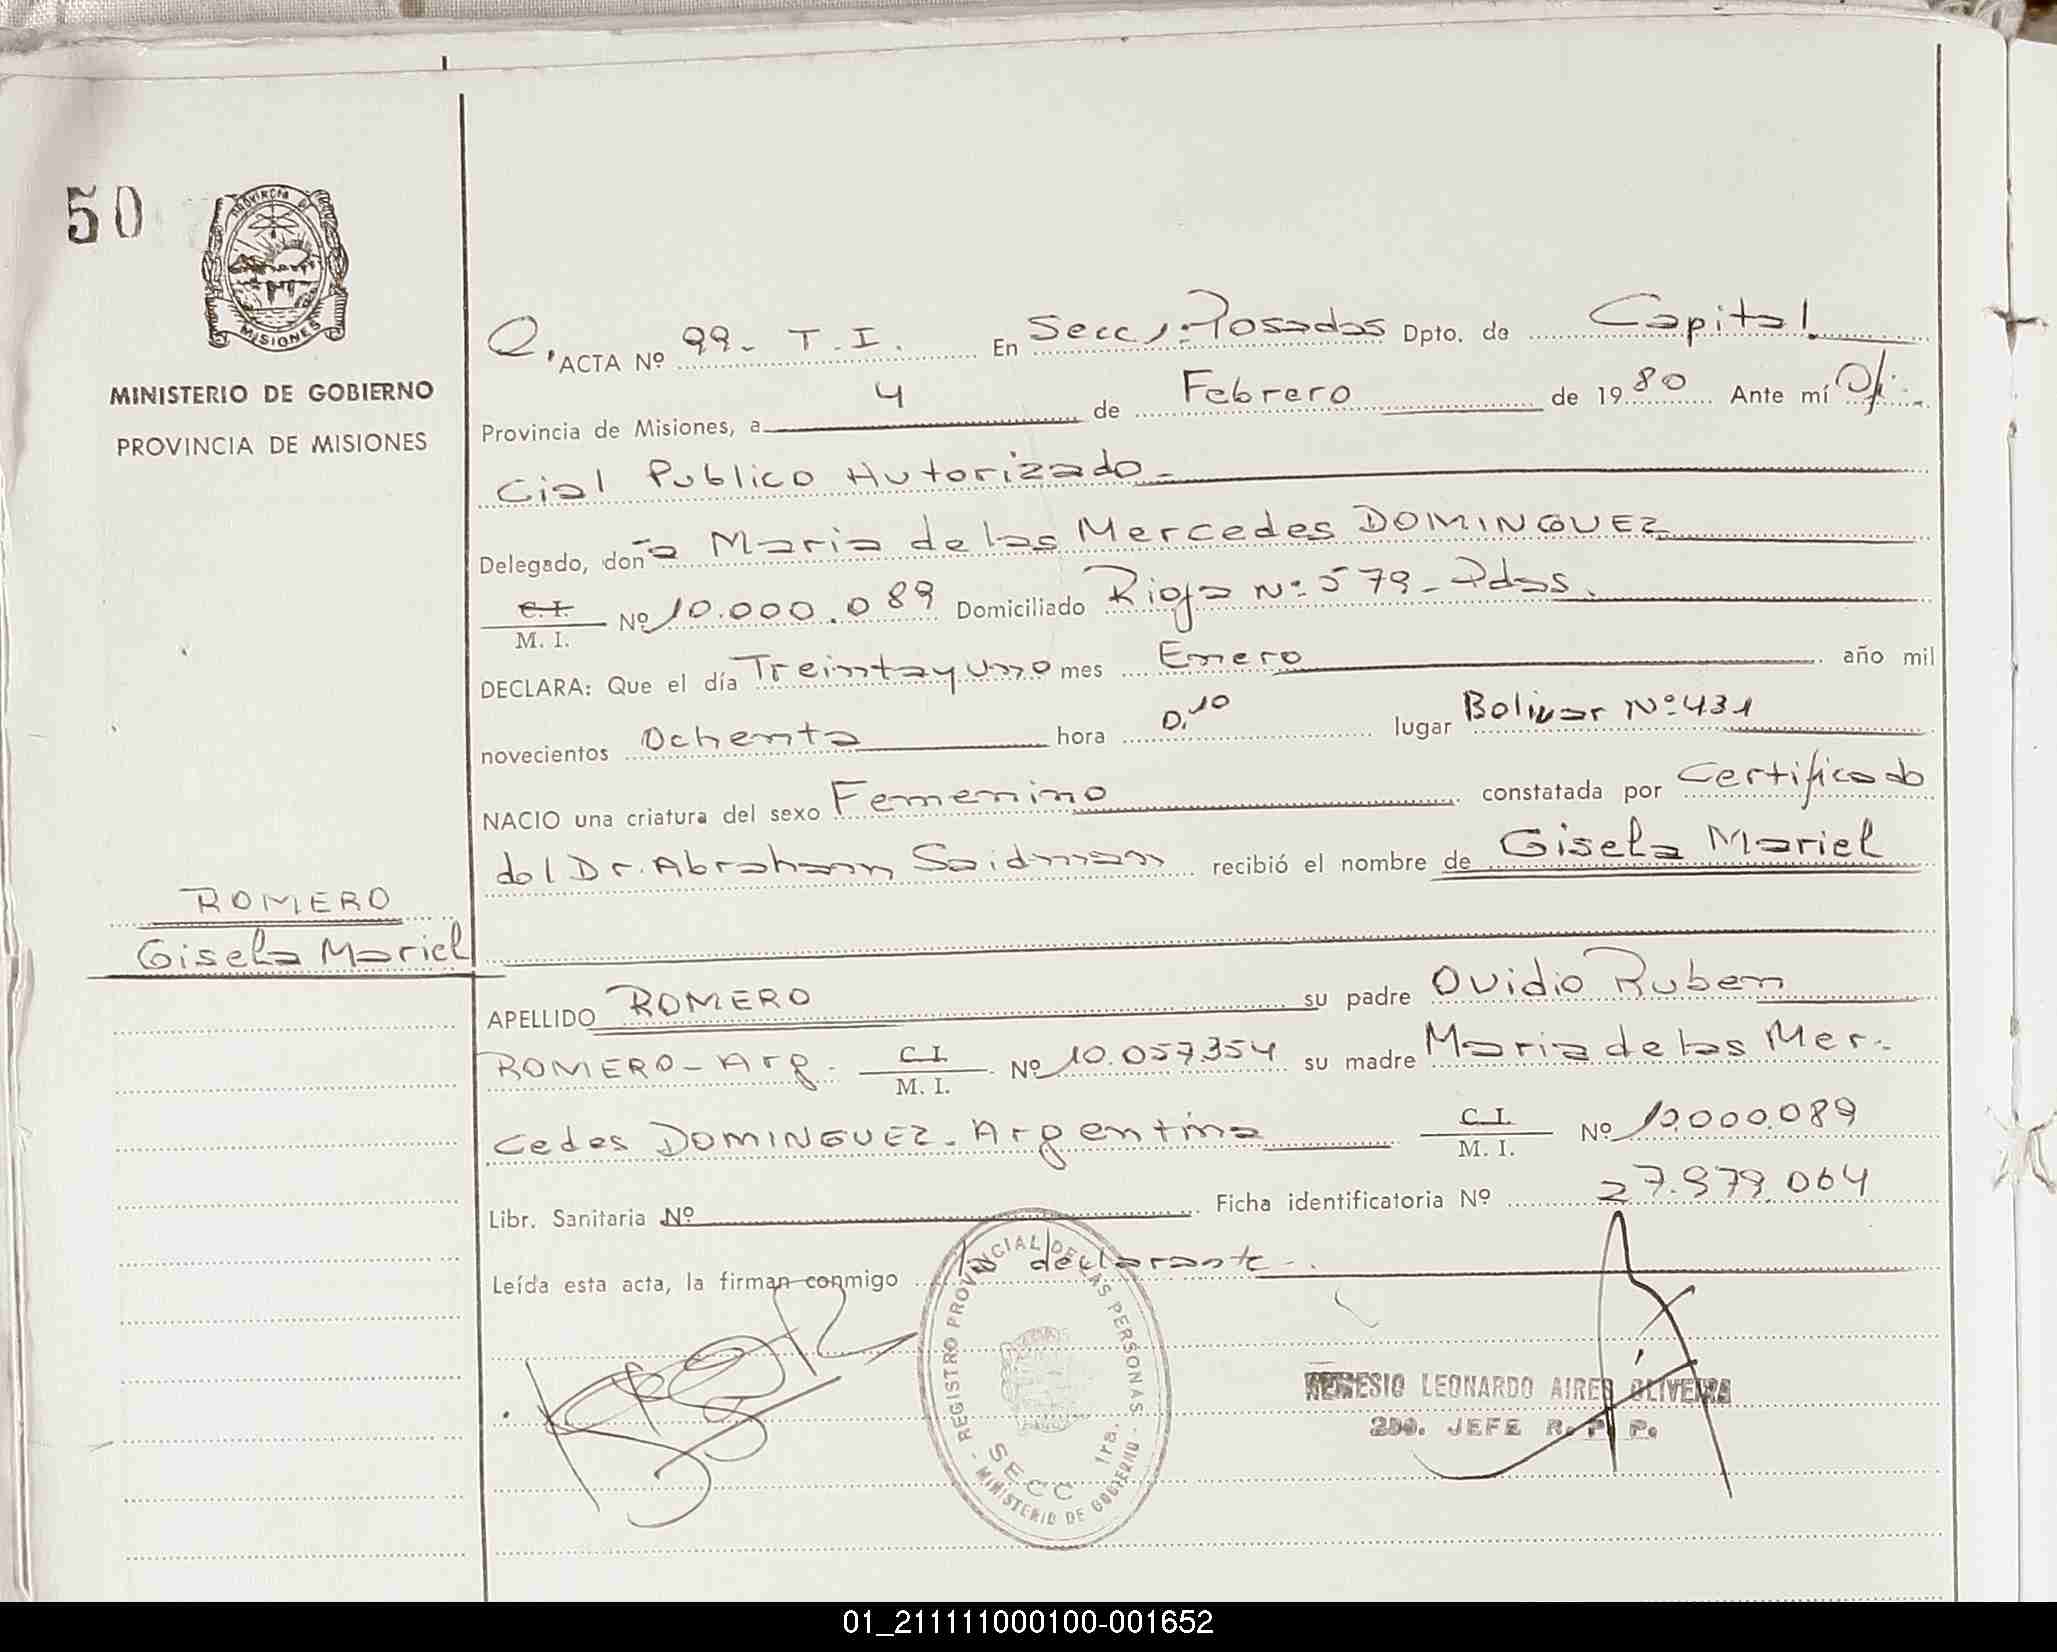 50
PROVINCIA DE
MISIONES
MINISTERIO DE GOBIERNO
PROVINCIA DE MISIONES
ROMERO
Gisela Mariel
ACTA Nº 99- T.I. En Secc 1:Posadas Dpto. de Capital
Provincia de Misiones, a 4 de Febrero de 1980 Ante mí Ofi-
cial Publico Autorizado-
Delegado, doña Maria de las Mercedes DOMINGUEZ
C.I. / M. I. Nº 10.000.089 Domiciliado Rioja Nº 579- Pdas.
DECLARA: Que el día Treintayuno mes Enero año mil
novecientos Ochenta hora 0.10 lugar Bolivar Nº 431
NACIO una criatura del sexo Femenino constatada por Certificado
del Dr. Abraham Saidman recibió el nombre de Gisela Mariel
APELLIDO ROMERO su padre Ovidio Ruben
ROMERO-Arg. C.I. / M. I. Nº 10.057354 su madre Maria de las Mer-
cedes DOMINGUEZ-Argentina C.I. / M. I. Nº 10.000.089
Libr. Sanitaria Nº Ficha identificatoria Nº 27.979.064
Leída esta acta, la firman conmigo la declarante-.
REGISTRO PROVINCIAL DE LAS PERSONAS
SECC 1ra.
MINISTERIO DE GOBIERNO
LEONARDO AIRES OLIVEIRA
2DO. JEFE R. P. P.
01_211111000100-001652